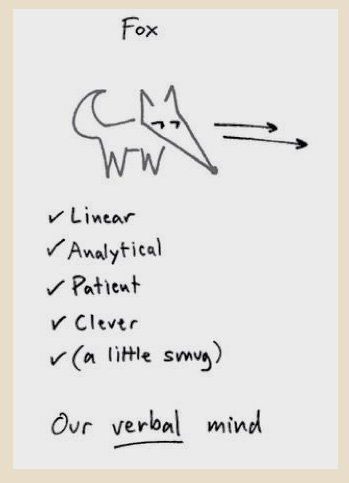 Fox
✓ Linear
✓ Analytical
✓ Patient
✓ Clever
✓ (a little smug)
Our verbal mind